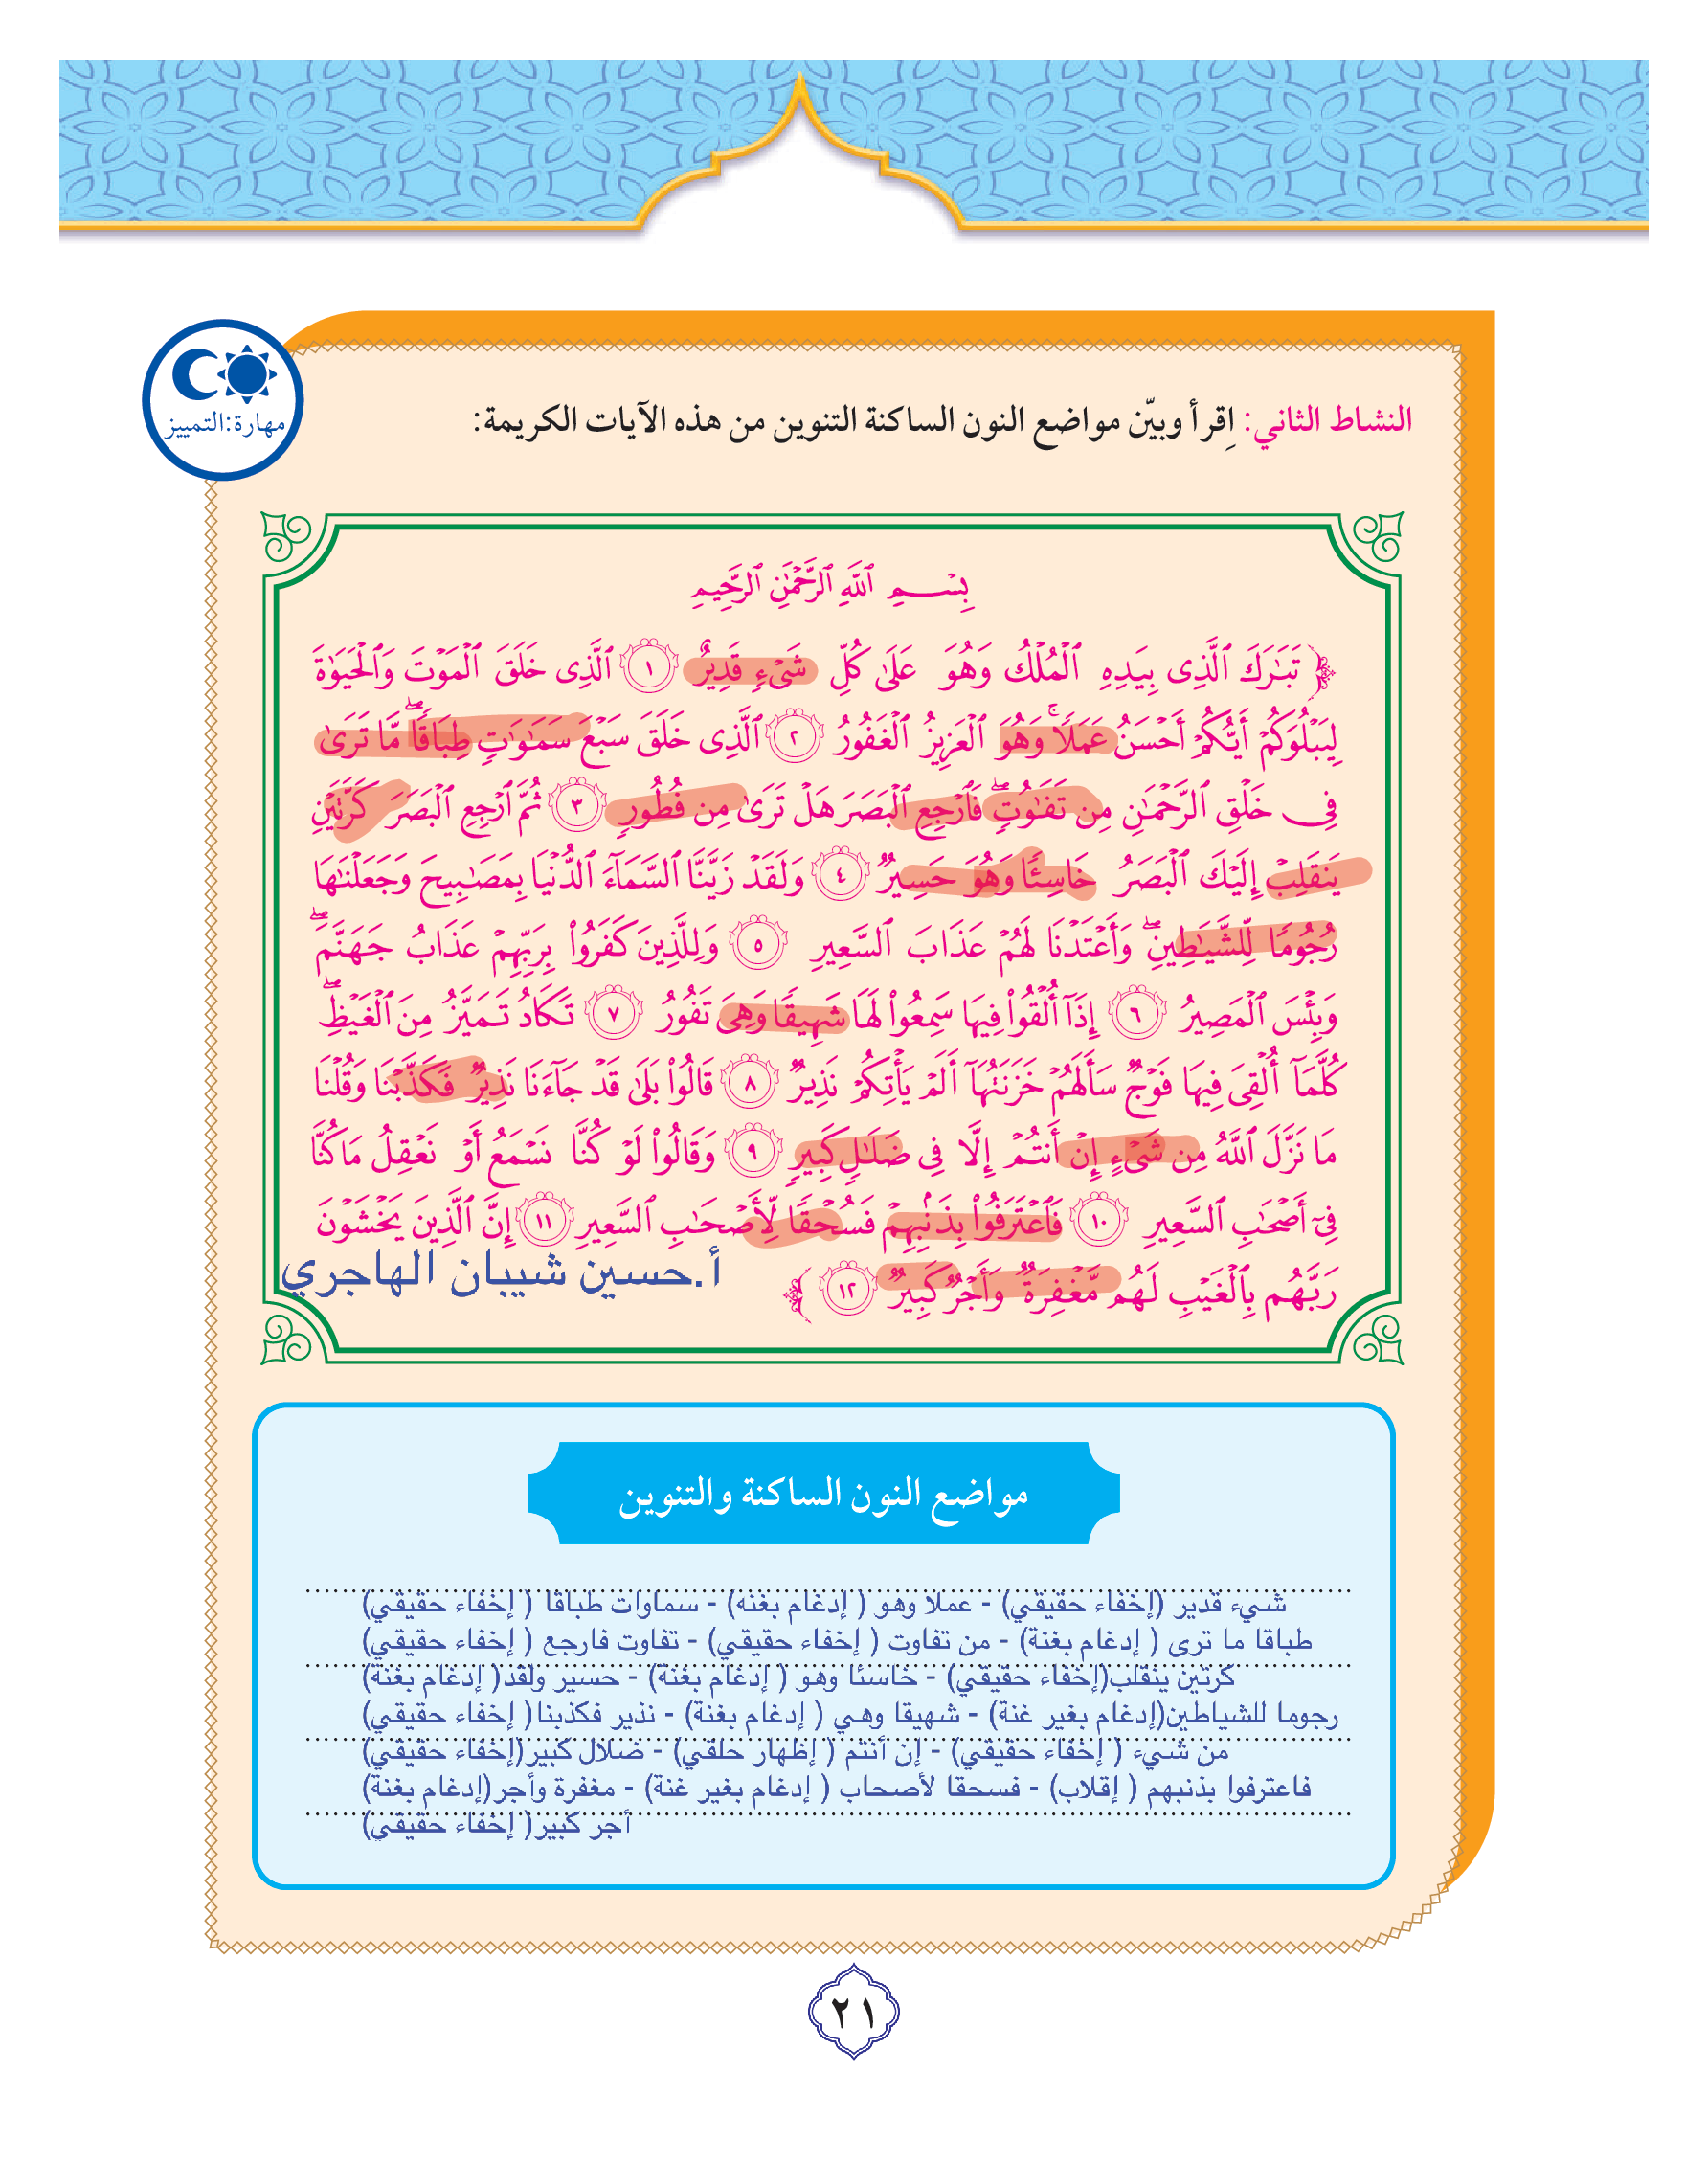 مهارة:التمييز
النشاط الثاني: اِقرأ وبيّن مواضع النون الساكنة التنوين من هذه الآيات الكريمة:
بِسْمِ ٱللَّهِ ٱلرَّحْمَٰنِ ٱلرَّحِيمِ
﴿ تَبَٰرَكَ ٱلَّذِى بِيَدِهِ ٱلْمُلْكُ وَهُوَ عَلَىٰ كُلِّ شَىْءٍ قَدِيرٌ ١ ٱلَّذِى خَلَقَ ٱلْمَوْتَ وَٱلْحَيَوٰةَ
لِيَبْلُوَكُمْ أَيُّكُمْ أَحْسَنُ عَمَلًا ۚ وَهُوَ ٱلْعَزِيزُ ٱلْغَفُورُ ٢ ٱلَّذِى خَلَقَ سَبْعَ سَمَٰوَٰتٍ طِبَاقًا ۖ مَّا تَرَىٰ
فِى خَلْقِ ٱلرَّحْمَٰنِ مِن تَفَٰوُتٍ ۖ فَٱرْجِعِ ٱلْبَصَرَ هَلْ تَرَىٰ مِن فُطُورٍ ٣ ثُمَّ ٱرْجِعِ ٱلْبَصَرَ كَرَّتَيْنِ
يَنقَلِبْ إِلَيْكَ ٱلْبَصَرُ خَاسِئًا وَهُوَ حَسِيرٌ ٤ وَلَقَدْ زَيَّنَّا ٱلسَّمَآءَ ٱلدُّنْيَا بِمَصَٰبِيحَ وَجَعَلْنَٰهَا
رُجُومًا لِّلشَّيَٰطِينِ ۖ وَأَعْتَدْنَا لَهُمْ عَذَابَ ٱلسَّعِيرِ ٥ وَلِلَّذِينَ كَفَرُوا۟ بِرَبِّهِمْ عَذَابُ جَهَنَّمَ ۖ
وَبِئْسَ ٱلْمَصِيرُ ٦ إِذَآ أُلْقُوا۟ فِيهَا سَمِعُوا۟ لَهَا شَهِيقًا وَهِىَ تَفُورُ ٧ تَكَادُ تَمَيَّزُ مِنَ ٱلْغَيْظِ ۖ
كُلَّمَآ أُلْقِىَ فِيهَا فَوْجٌ سَأَلَهُمْ خَزَنَتُهَآ أَلَمْ يَأْتِكُمْ نَذِيرٌ ٨ قَالُوا۟ بَلَىٰ قَدْ جَآءَنَا نَذِيرٌ فَكَذَّبْنَا وَقُلْنَا
مَا نَزَّلَ ٱللَّهُ مِن شَىْءٍ إِنْ أَنتُمْ إِلَّا فِى ضَلَٰلٍ كَبِيرٍ ٩ وَقَالُوا۟ لَوْ كُنَّا نَسْمَعُ أَوْ نَعْقِلُ مَا كُنَّا
فِىٓ أَصْحَٰبِ ٱلسَّعِيرِ ١٠ فَٱعْتَرَفُوا۟ بِذَنۢبِهِمْ فَسُحْقًا لِّأَصْحَٰبِ ٱلسَّعِيرِ ١١ إِنَّ ٱلَّذِينَ يَخْشَوْنَ
رَبَّهُم بِٱلْغَيْبِ لَهُم مَّغْفِرَةٌ وَأَجْرٌ كَبِيرٌ ١٢ ﴾
أ.حسين شيبان الهاجري
مواضع النون الساكنة والتنوين
شيء قدير (إخفاء حقيقي) - عملا وهو ( إدغام بغنه) - سماوات طباقا ( إخفاء حقيقي)
طباقا ما ترى ( إدغام بغنة) - من تفاوت ( إخفاء حقيقي) - تفاوت فارجع ( إخفاء حقيقي)
كرتين ينقلب(إخفاء حقيقي) - خاسئا وهو ( إدغام بغنة) - حسير ولقد( إدغام بغنة)
رجوما للشياطين(إدغام بغير غنة) - شهيقا وهي ( إدغام بغنة) - نذير فكذبنا( إخفاء حقيقي)
من شيء ( إخفاء حقيقي) - إن أنتم ( إظهار حلقي) - ضلال كبير(إخفاء حقيقي)
فاعترفوا بذنبهم ( إقلاب) - فسحقا لأصحاب ( إدغام بغير غنة) - مغفرة وأجر(إدغام بغنة)
أجر كبير( إخفاء حقيقي)
٢١